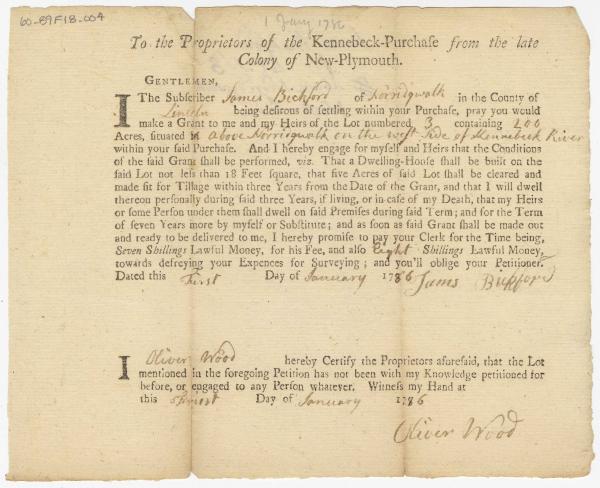 60-89F18-004
1 Jany 1786
To the Proprietors of the Kennebeck-Purchase from the late
Colony of New-Plymouth.
GENTLEMEN,
I The Subscriber James Bickford of Norridgwalk in the County of
Lincoln being desirous of settling within your Purchase, pray you would
make a Grant to me and my Heirs of the Lot numbered 3 containing 200
Acres, situated in above Norrigwalk on the west side of Kennebeck River
within your said Purchase. And I hereby engage for myself and Heirs that the Conditions
of the said Grant shall be performed, viz. That a Dwelling-House shall be built on the
said Lot not less than 18 Feet square, that five Acres of said Lot shall be cleared and
made fit for Tillage within three Years from the Date of the Grant, and that I will dwell
thereon personally during said three Years, if living, or in case of my Death, that my Heirs
or some Person under them shall dwell on said Premises during said Term; and for the Term
of seven Years more by myself or Substitute; and as soon as said Grant shall be made out
and ready to be delivered to me, I hereby promise to pay your Clerk for the Time being,
Seven Shillings Lawful Money, for his Fee, and also Eight Shillings Lawful Money,
towards defreying your Expences for Surveying; and you'll oblige your Petitioner.
Dated this First Day of January 1786 James Bickford
I Oliver Wood hereby Certify the Proprietors aforesaid, that the Lot
mentioned in the foregoing Petition has not been with my Knowledge petitioned for
before, or engaged to any Person whatever. Witness my Hand at
this First Day of January 1786
Oliver Wood